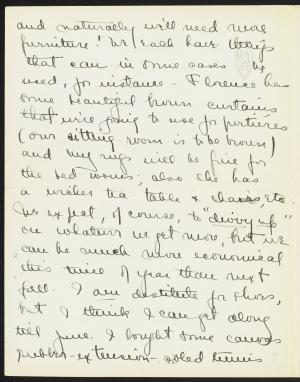 and naturally we'll need more
furniture! We each have things
that can in some cases be
used, for instance - Florence has
some beautiful brown curtains
that we're going to use for portières
(our sitting room is to be brown)
and my rugs will be fine for
the bed rooms; also she has
a wicker tea table & chairs, etc.
We expect, of course, to "divvy up"
on whatever we get now, but we
can be much more economical
this time of year than next
fall. I am destitute for shoes,
but I think I can get along
till June. I bought some canvas
rubber-extension-soled tennis